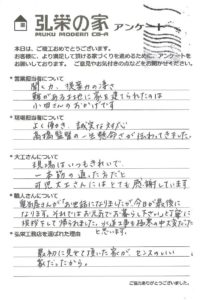 弘栄の家 アンケート
MUKU MODERN
本日は、ご竣工おめでとうございます。
お客様に、より満足して頂ける家づくりを進めるために、アンケートを
お願いしております。 ご意見やお気付きの点などをお聞かせください。
*営業担当者について
聞く力、提案力の凄さ
小田さんのおかげです
*現場担当者について
よく働き、誠実な対応
高橋監督の一生懸命さが伝わってきました。
*大工さんについて
現場はいつもきれいで、
一本筋の通った方だと
大工さんにはとても感謝しています
*職人さんについて
電気屋さんが「お世話になりましたが今日が最後に
なります。それではお元気でお暮らし下さい」と家に
挨拶をして帰られました。
と思います。
*弘栄工務店を選ばれた理由
最初に見せて頂いた家が、センスのいい
家だったから。
ご協力ありがとうございました。